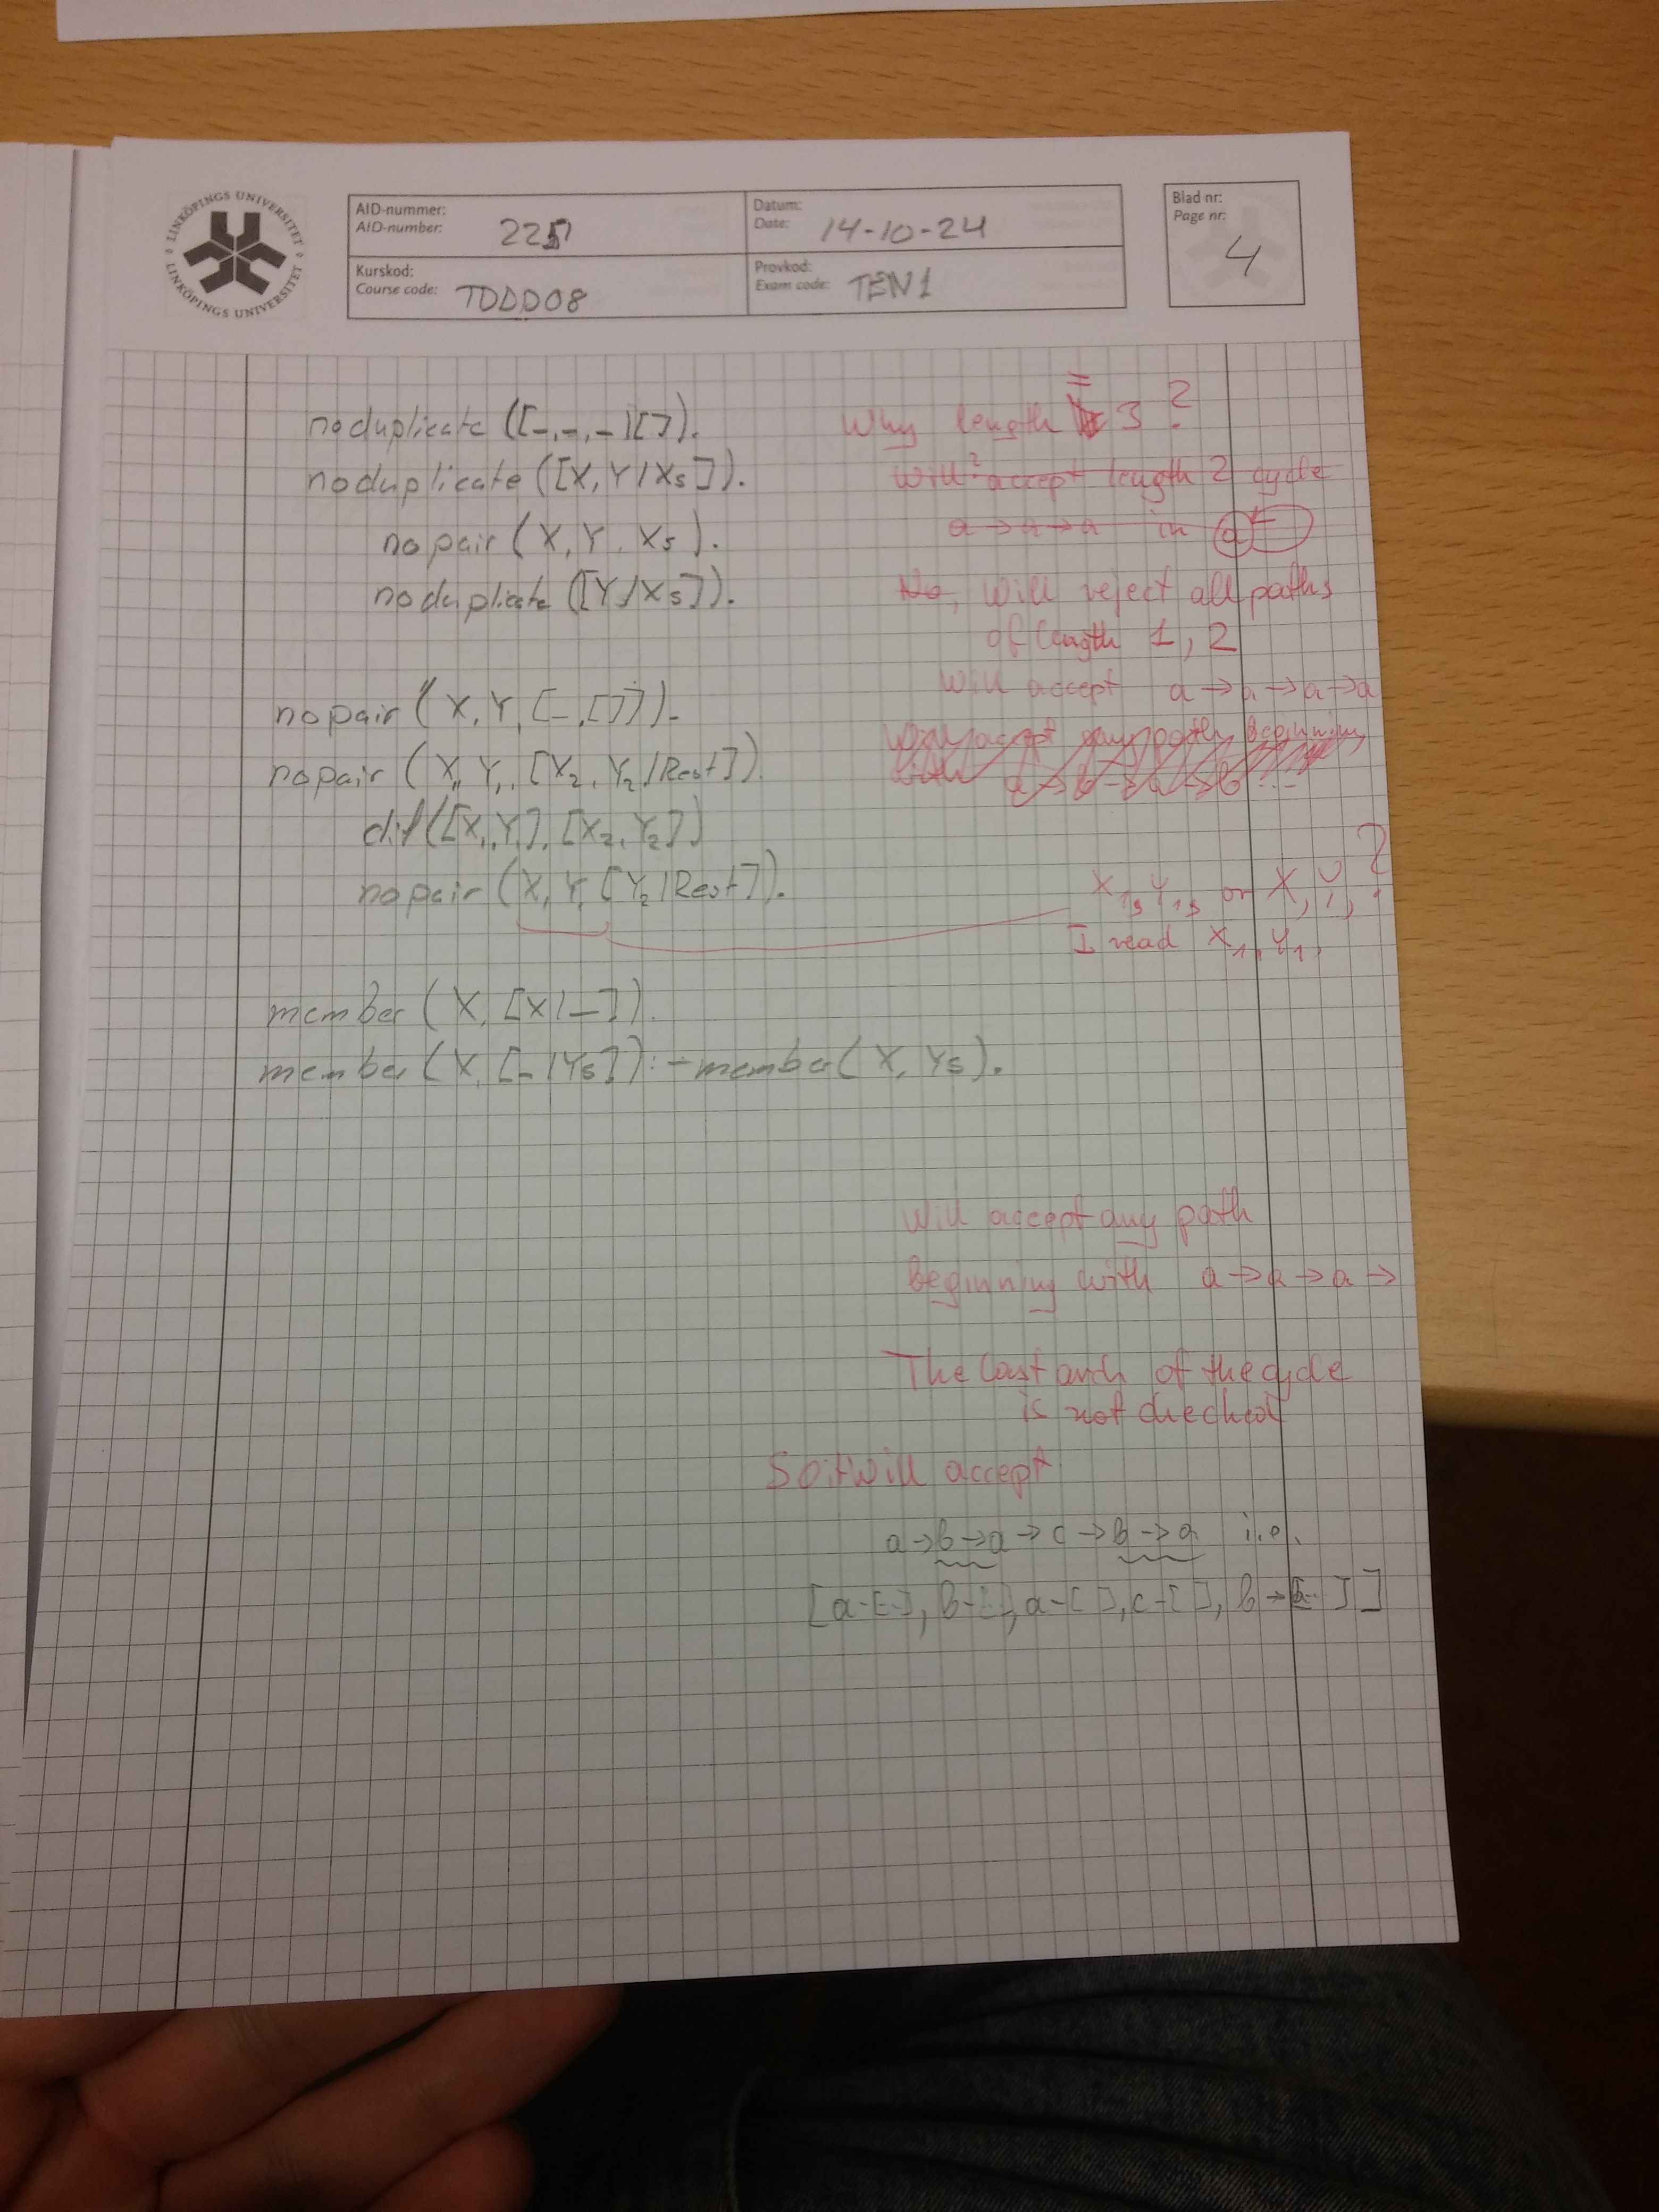 LINKÖPINGS UNIVERSITET
LINKÖPINGS UNIVERSITET
AID-nummer:
AID-number: 2251
Datum:
Date: 14-10-24
Blad nr:
Page nr:
4
Kurskod:
Course code: TDDD08
Provkod:
Exam code: TEN1
noduplicate ([_,_,_|[]).
Why length = 3 ?
noduplicate ([X, Y | Xs]).
Will accept length 2 cycle
nopair (X, Y, Xs).
a → a → a in a
noduplicate ([Y | Xs]).
No, Will reject all paths
of length 1, 2
Will accept a → a → a → a
nopair (X, Y, [_, []]).
nopair (X₁, Y₁, [X₂, Y₂ | Rest])
a → b → a → b ...
dif ([X₁, Y₁], [X₂, Y₂])
nopair (X, Y, [Y₂ | Rest]).
X₁, Y₁, or X, Y, ?
I read X₁, Y₁,
member (X, [X | _]).
member (X, [_ | Ys]) :- member (X, Ys).
Will accept any path
beginning with a → a → a →
The last arch of the cycle
is not checked
So it will accept
a → b → a → c → b → a i.e.
[a-[-], b-[-], a-[ ], c-[ ], b → ]]